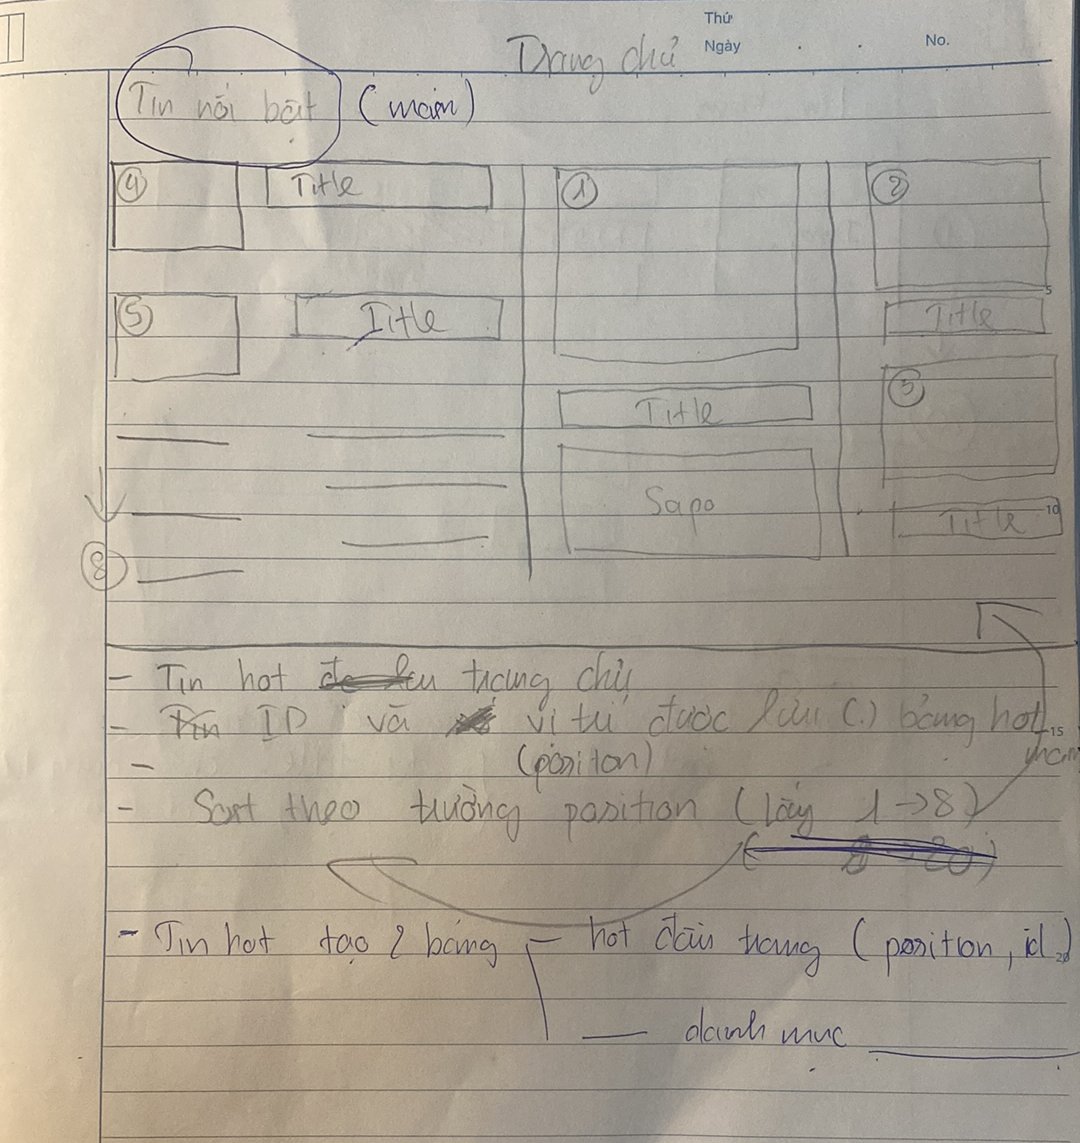 Thứ
Trang chủ
Ngày . .
No.
Tin nổi bật (main)
④ Title
①
②
⑤ Title
5
Title
③
Title
Sapo
10
Title
⑧
- Tin hot trang chủ
- ID và vị trí được lưu (.) bảng hot
15
main
- (position)
- Sort theo trường position (lấy 1 → 8)
- Tin hot tạo 2 bảng — hot đầu trang (position, id)
20
— danh mục